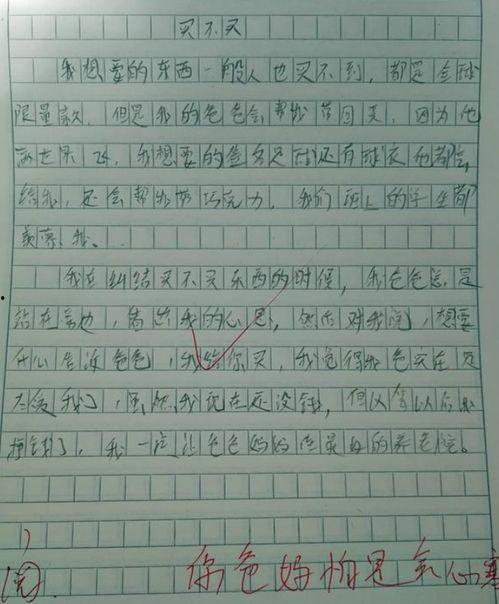 买不买
我想要的东西一般人也买不到，都是全球
限量款，但是我的爸爸会帮我带回来，因为他
满世界飞，我想要的签名足球还有球衣他都会
给我，还会帮我带巧克力，我们班上的学生都
羡慕我、
我在纠结买不买东西的时候，我爸爸总是
站在旁边，看出我的心思，然后对我说，想要
开心告诉爸爸，我给你买，我觉得我爸实在是
太爱我了，虽然我现在还没钱，但以后
挣钱了，我一定让爸爸妈妈住最好的养老院。
你爸妈怕是会心寒